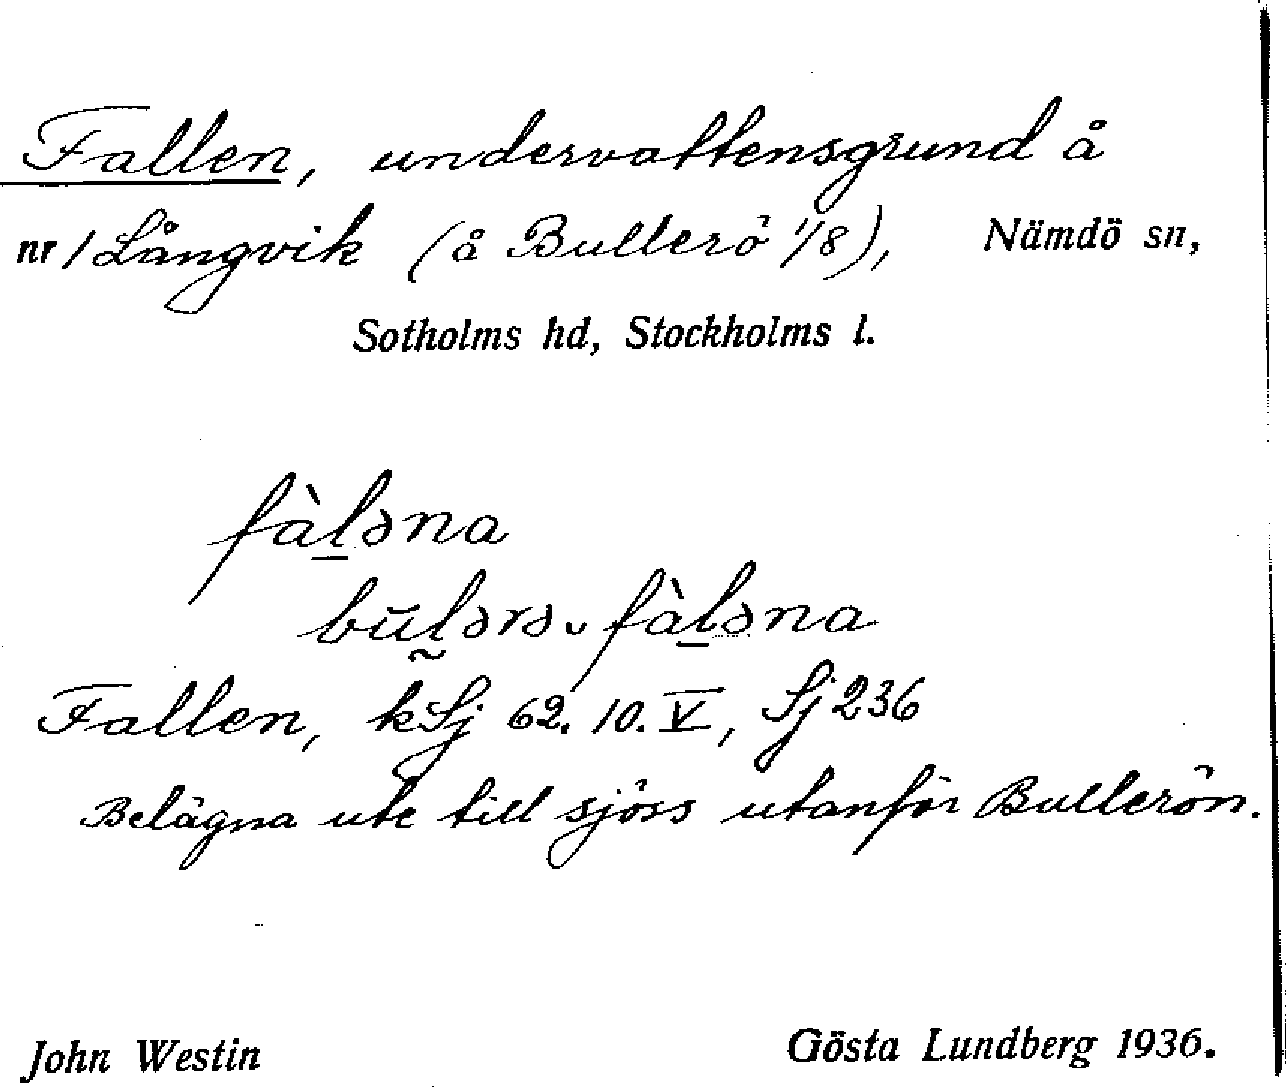 Fallen, undervattensgrund å
nr 1 Långvik (å Bullerö 1/8), Nämdö sn,
Sotholms hd, Stockholms l.
fàl̲əna
bŭl̰ərəᵥfàl̲əna
Fallen, kSj 62. 10. V, Sj 236
Belägna ute till sjöss utanför Bullerön.
John Westin Gösta Lundberg 1936.